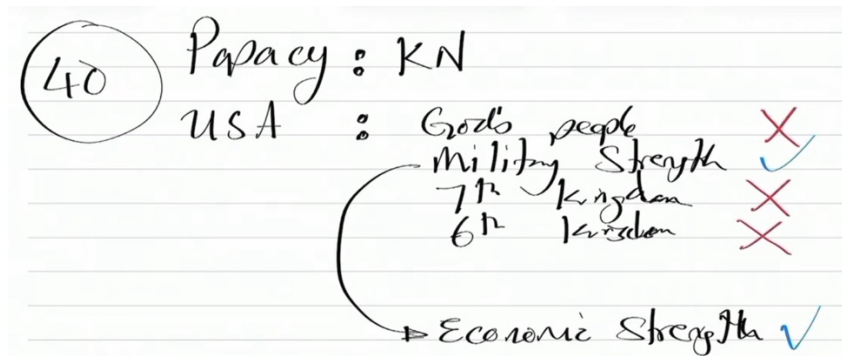 40 Papacy : KN
USA : God's people X
Military Strength ✓
7th Kingdom X
6th Kingdom X
Economic Strength ✓